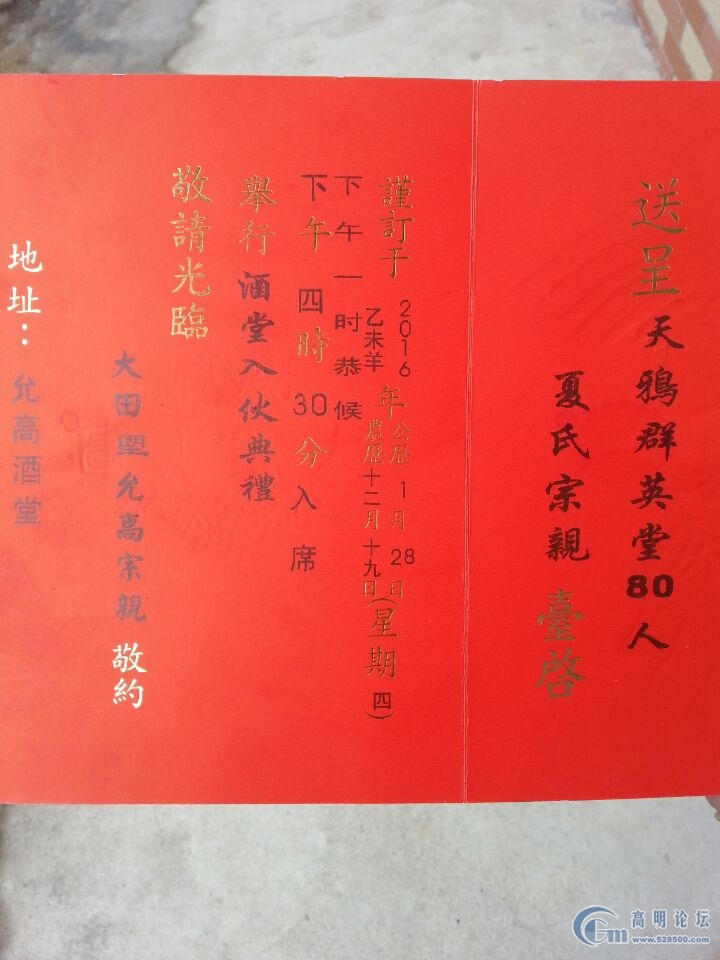 送呈天鴉群英堂80人
夏氏宗親 臺啓
謹訂于2016年公歷1月28日(星期四)
乙未羊 農歷十二月十九日
下午一时恭候
下午四時30分入席
舉行酒堂入伙典禮
敬請光臨
大田堲允高宗親 敬約
地址：允高酒堂
高明论坛
www.528500.com